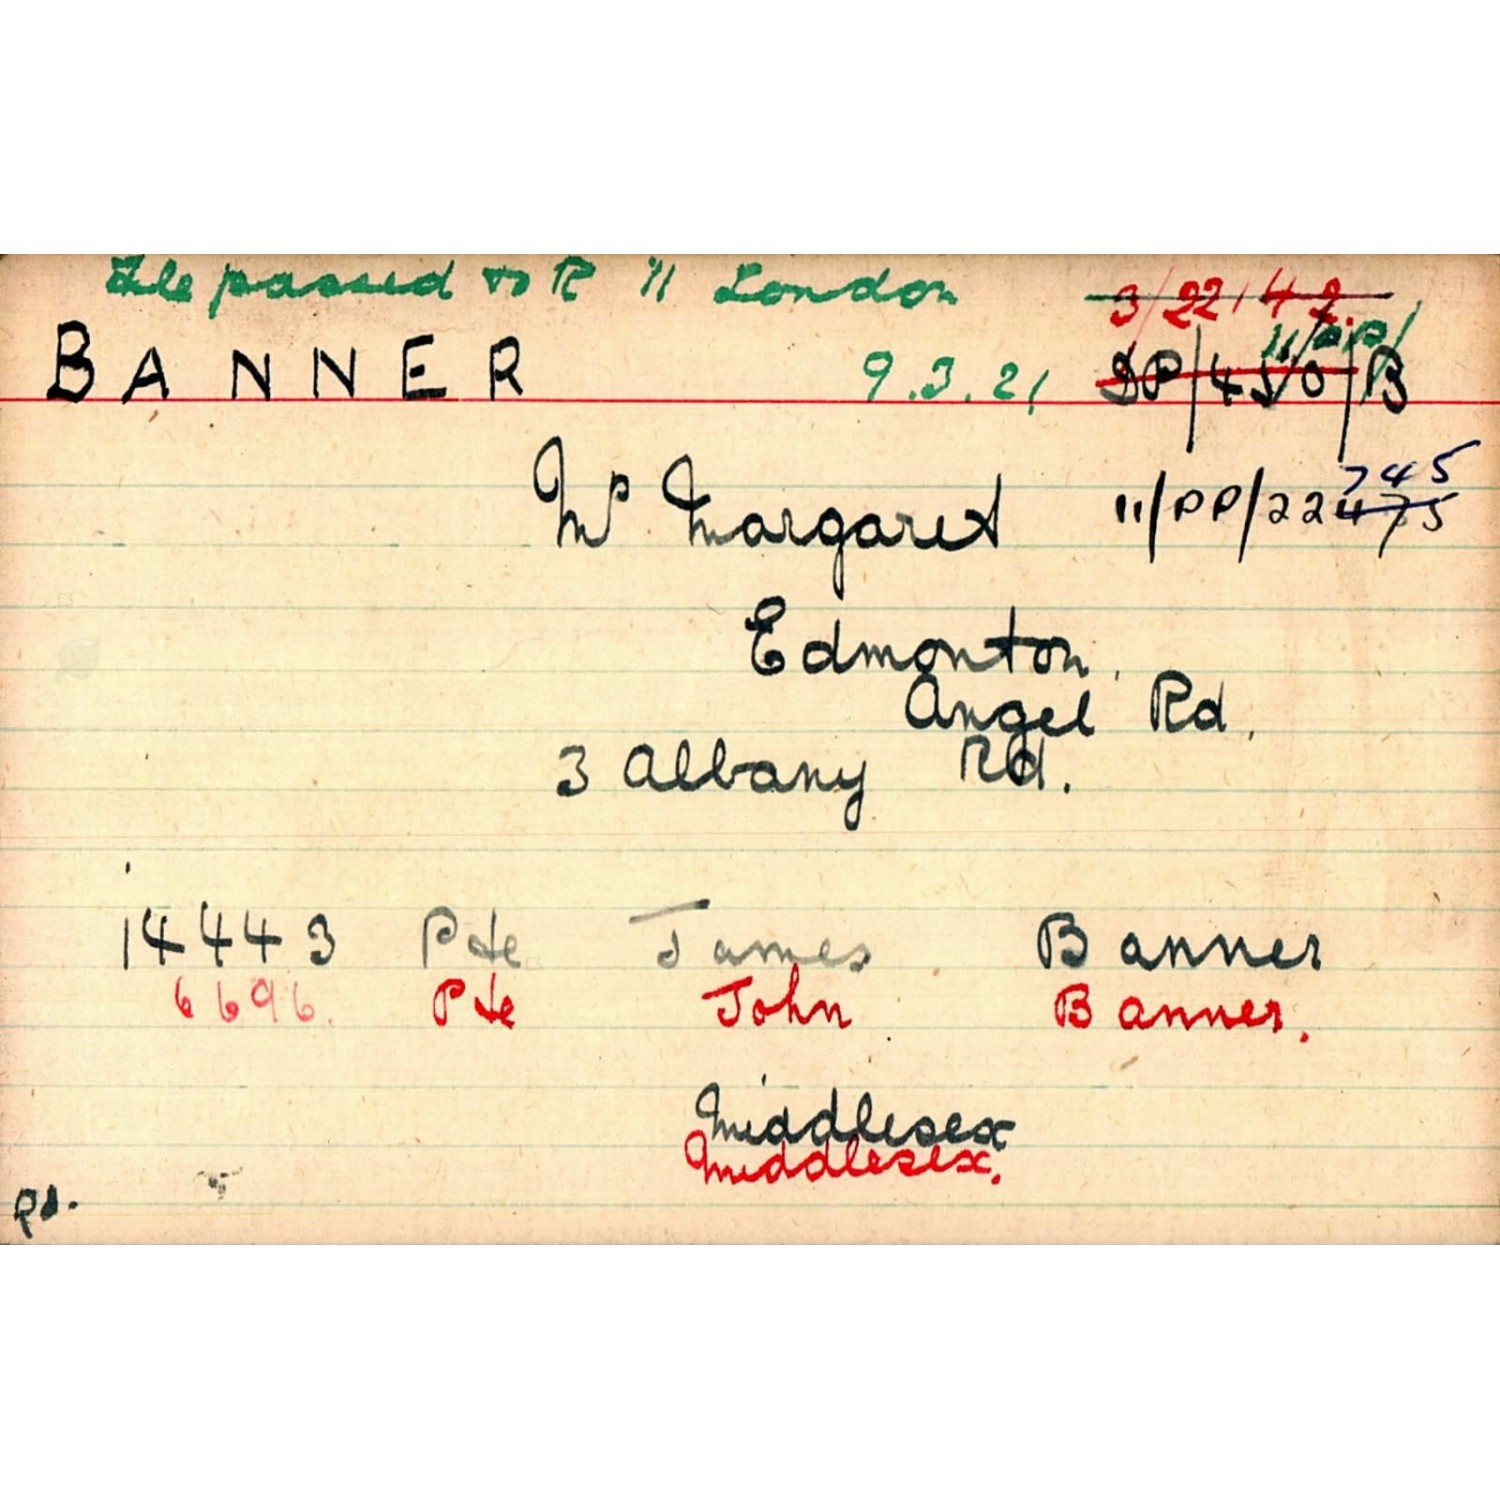 File passed to R 11 London
3/22142.
11/PP/
BANNER 9.3.21 DP/45/0/B
Mrs Margaret 11/PP/22475
745
Edmonton.
Angel Rd.
3 Albany Rd.
14443 Pte James Banner
6696. Pte John Banner.
Middlesex
Middlesex.